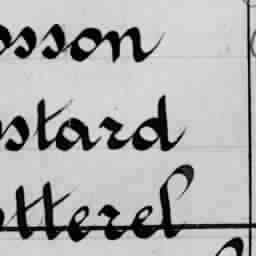 osson
ustard
otterel